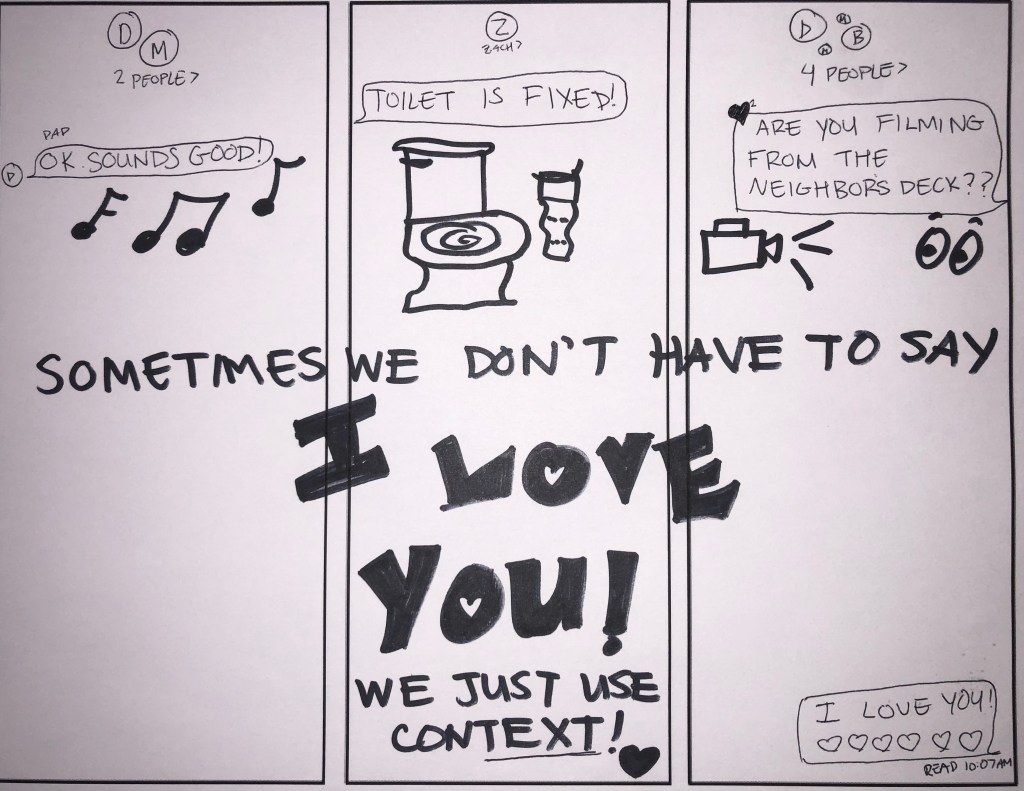 D
M
2 PEOPLE>
DAD
D
OK. SOUNDS GOOD!
Z
ZACH>
TOILET IS FIXED!
D
M
M
B
4 PEOPLE>
2
ARE YOU FILMING
FROM THE
NEIGHBOR'S DECK??
SOMETIMES WE DON'T HAVE TO SAY
I LOVE
YOU!
WE JUST USE
CONTEXT!
I LOVE YOU!
READ 10:07AM